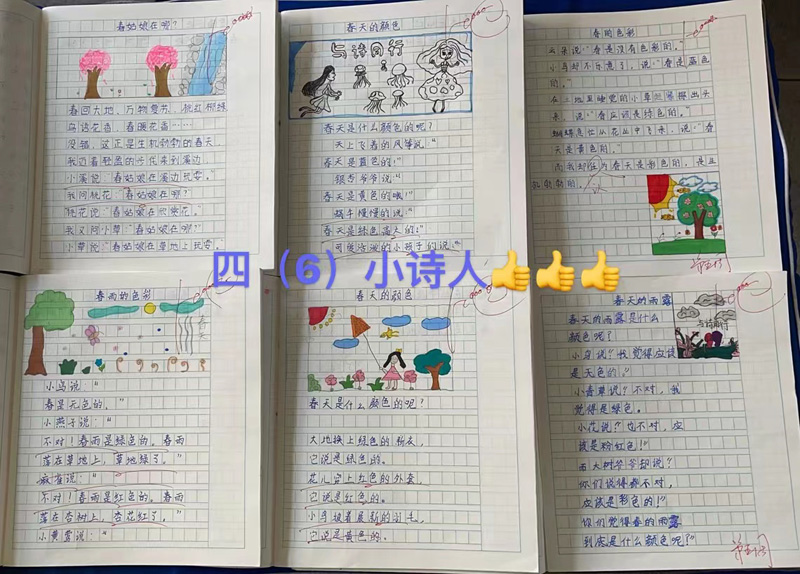 春姑娘在哪?
春回大地,万物复苏,桃红柳绿
鸟语花香,春暖花香……
没错,这正是生机勃勃的春天,
我迈着轻盈的步伐来到溪边,
小溪说:“春姑娘在溪边玩耍。”
我问桃花:“春姑娘在哪?”
桃花说:“春姑娘在欣赏花。”
我又问小草:“春姑娘在哪?”
小草说:“春姑娘在草地上玩耍。”
春天的颜色
与诗同行
春天是什么颜色的呢?
天上飞着的风筝说,
春天是蓝色的;”
银杏爷爷说:“
春天是黄色的哦!”
蜗牛慢慢的说,“
春天是绿色高大的;”
可爱活泼的小孩子们说:“
春的色彩
云朵说“春是没有色彩的。”
小鸟却不乐意了,说“春是蓝色
的。”
在土地里睡觉的小草
来,说:“春应该是绿色的。”
蝴蝶
天是黄色的。”
而我却
机勃勃的。
四(6)小诗人👍👍👍
春雨的色彩
春天
小鸟说:“
春是无色的,”
小燕子说:“
不对!春雨是绿色的。春雨
落在草地上,草地绿了。”
麻雀说:“
不对!春雨是红色的。春雨
落在杏树上,杏花红了。”
小黄莺说:“
春天的颜色
春天是什么颜色的呢?
大地换上绿色的
它说是绿色的。
花儿穿上红色的外套,
它说是红色的。
小鸟披着最新的羽毛,
它说是黄色的。
春天的雨露
与诗同行
春天的雨露是什么
颜色呢?
小鸟说?我觉得应该
是无色的,”
小青草说?不对,我
觉得是绿色。
小花说?也不对,应
该是粉红色!”
而大树爷爷却说?
你们说得都不对,
应该是彩色的!”
你们觉得春的雨露
到底是什么颜色呢?”